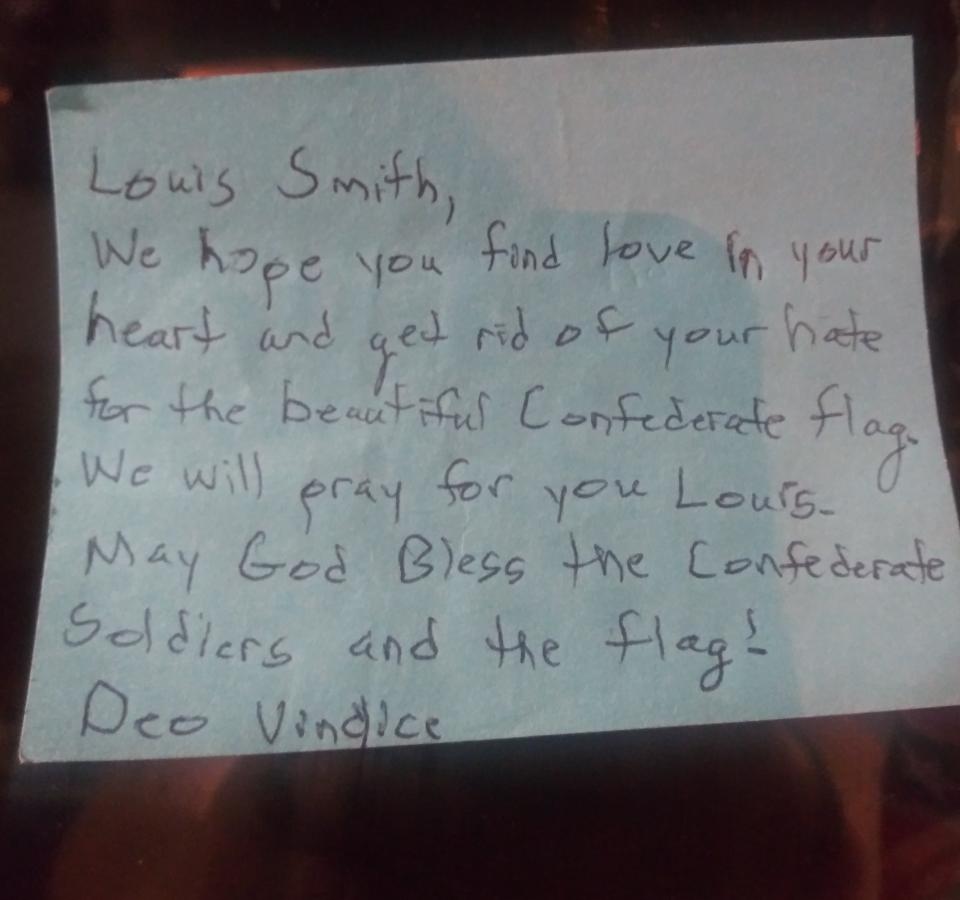 Louis Smith,
We hope you find love in your
heart and get rid of your hate
for the beautiful Confederate flag.
We will pray for you Louis.
May God Bless the Confederate
Soldiers and the flag!
Deo Vindice